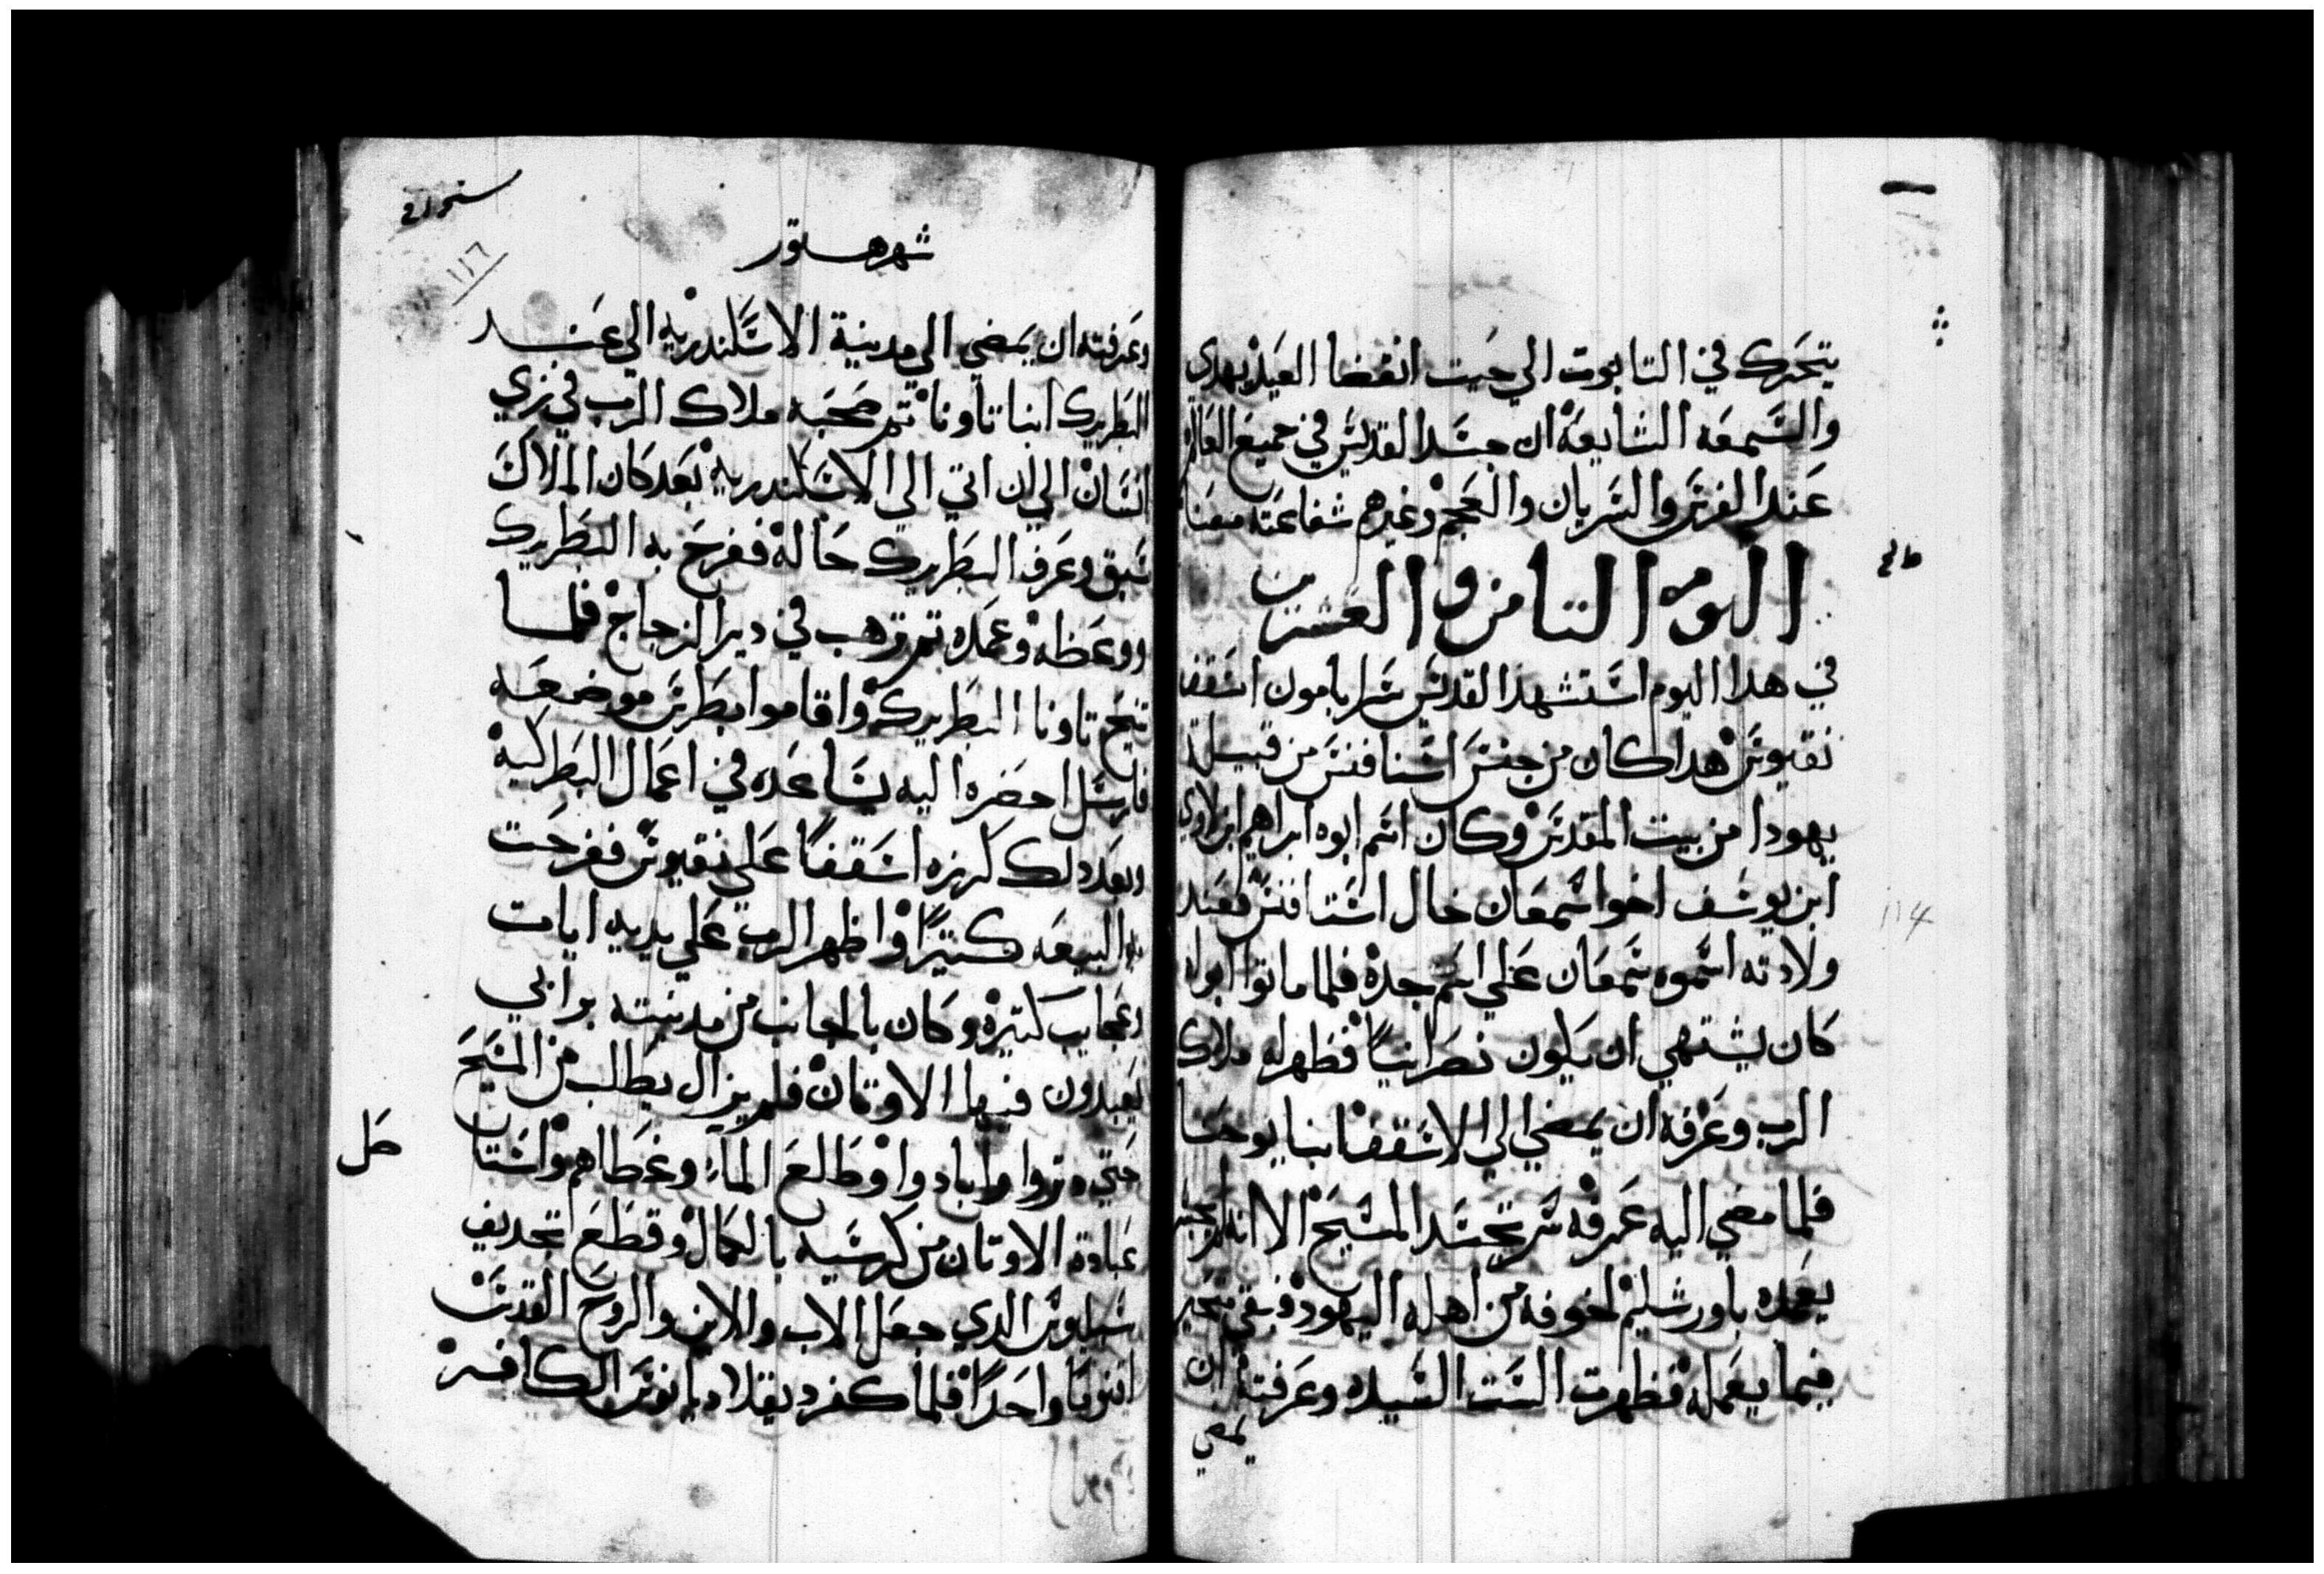 يتحرك في التابوت الي حيت انقضا العيد بهدي
والسمعه الشايعه ان جسد القديس في جميع العالم
عند الفرنس والسريان والعجم وغيرهم شفاعته معنا
اليوم التامن والعشرين
في هدا اليوم استشهد القديس سرابامون اسقف
نقيوس هدا كان من جنس استافنس من قبيلة
يهودا من بيت المقدس وكان اسم ابوه ابراهيم ابن لاوي
ابن يوسف اخوا سمعان خال استافنس فعند
ولادته اسموه سمعان علي اسم جده فلما ماتوا ابواه
كان يشتهي ان يكون نصرانيا فظهر له ملاك
الرب وعرفه ان يمضي الي الاسقف انبا يوحنا
فلما مضي اليه عرفه سر تجسد المسيح الا انه لم يجسر
يعمده باورشليم لخوفه من اهله اليهود وبقي متحير
فيما يعمله فظهرت الست السيده وعرفته ان
يمضي
سنكسار
١١٦
شهر هتور
وعرفته ان يمضي الي مدينة الاسكندريه الي عند
البطريرك انبا تاونا تم صحبه ملاك الرب في زي
انسان الي ان اتي الي الاسكندريه بعد كان الملاك
سبق وعرف البطريرك حاله ففرح به البطريرك
ووعظه وعمده تم ترهب في دير الزجاج فلما
تنيح تاونا البطريرك واقاموا بطرس موضعه
فارسل احضره اليه يساعده في اعمال البطركيه
وبعد دلك كرزه اسقفا علي نقيوس ففرحت
به البيعه كتيرا واظهر الرب علي يديه ايات
وعجايب كتيره وكان بالجانب من مدينته برابي
يعبدون فيها الاوتان فلم يزال يطلب من المسيح
حتي وابادوا وطلع الماء وغطاهم واستا
صل
عبادة الاوتان من كرسيه بالكمال وقطع تجديف
سبليوس الدي جعل الاب والابن والروح القدس
اقنوما واحدا فلما كفر ديقلاديانوس الكافر